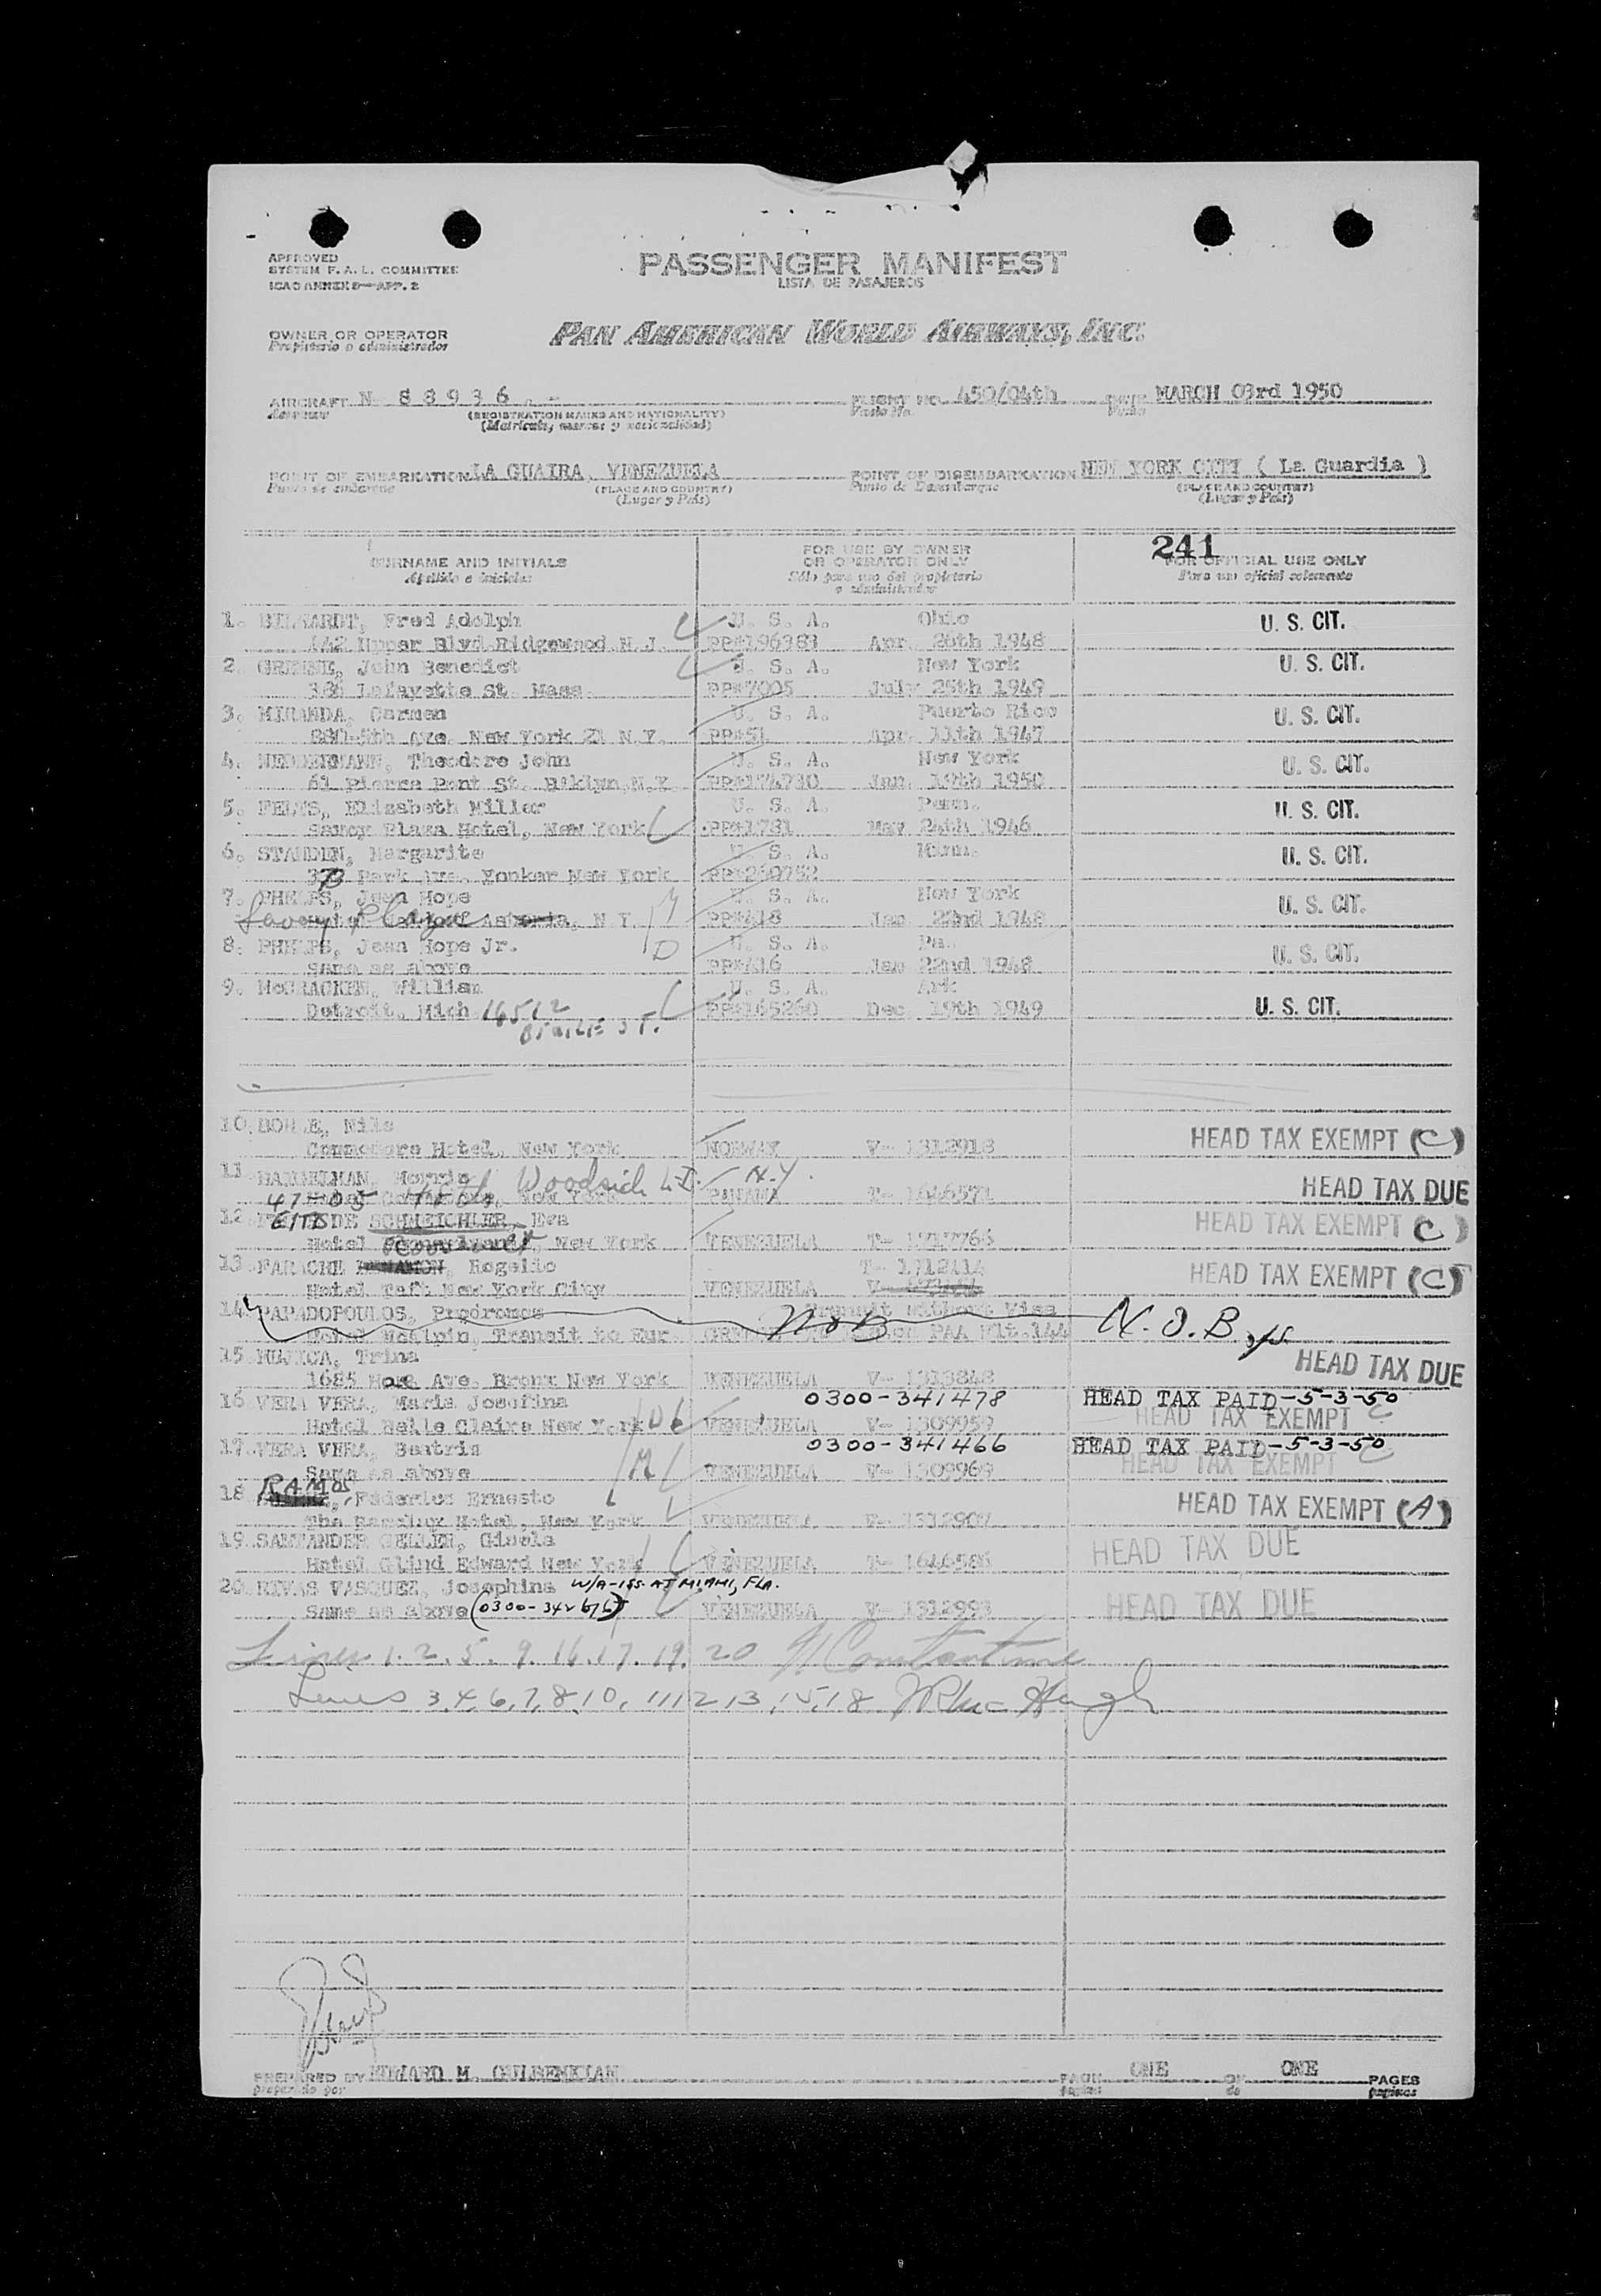 APPROVED
SYSTEM F. A. L. COMMITTEE
ICAO ANNEX 9—APP. 2
PASSENGER MANIFEST
LISTA DE PASAJEROS
OWNER OR OPERATOR
Propietario o administrador
PAN AMERICAN WORLD AIRWAYS, INC.
AIRCRAFT N 88936
(REGISTRATION MARKS AND NATIONALITY)
(Matricula, marcas y nacionalidad)
FLIGHT NO. 450/04th
Vuelo No.
DATE MARCH 03rd 1950
POINT OF EMBARKATION LA GUAIRA, VENEZUELA
Punto de embarque
(PLACE AND COUNTRY)
(Lugar y País)
POINT OF DISEMBARKATION NEW YORK CITY ( La Guardia )
Punto de Desembarque
(PLACE AND COUNTRY)
(Lugar y País)
241
SURNAME AND INITIALS
Apellido e iniciales
FOR USE BY OWNER
OR OPERATOR ONLY
Sólo para uso del propietario
o administrador
FOR OFFICIAL USE ONLY
Para uso oficial solamente
1. Fred Adolph U. S. A. Ohio U. S. CIT.
142 Upper Blvd Ridgewood N.J. PP#196383 Apr. 20th 1948
2. GREENE, John Benedict U. S. A. New York U. S. CIT.
Lafayette St. Mass. PP#7005 July 25th 1949
3. MIRANDA, Carmen U. S. A. Puerto Rico U. S. CIT.
5th Ave. New York 21 N.Y. PP#51 Apr. 11th 1947
4. Theodore John U. S. A. New York U. S. CIT.
61 Pierre Pont St. B'klyn, N.Y. PP#174730 Jan. 19th 1950
5. Elizabeth Miller U. S. A. Penn. U. S. CIT.
Savoy Plaza Hotel, New York PP#1781 May 24th 1946
6. Margarite U. S. A. U. S. CIT.
Park Ave. Yonker New York PP#260752
7. PHELPS, Jean Hope U. S. A. New York U. S. CIT.
Savoy Plaza Astoria, N.Y. PP#418 Jan. 22nd 1948
8. PHELPS, Jean Hope Jr. U. S. A. Pa. U. S. CIT.
same as above PP#416 Jan 22nd 1948
9. McCRACKEN, William U. S. A. Ark U. S. CIT.
Detroit, Mich 16512 ST. PP#165260 Dec. 19th 1949
10. Nils
Commodore Hotel, New York NORWAY V- 1312918 HEAD TAX EXEMPT (C)
11. Morris Woodside L.I. N.Y.
47-05 New York PANAMA T- 1646571 HEAD TAX DUE
12. DE SCHMEICHLER, Eva HEAD TAX EXEMPT C )
Hotel New York VENEZUELA
13. FARACHE Rogelio T- 1712414 HEAD TAX EXEMPT (C)
Hotel Taft New York City VENEZUELA
14. PAPADOPOULOS, Prodromos Transit without Visa
Hotel McAlpin, Transit to Eur. NOB PAA Flt. 144 N.O.B.
15. MUJICA, Trina HEAD TAX DUE
1685 Ave. Bronx New York VENEZUELA V- 1313848
16. VERA VERA, Maria Josefina 0300-341478 HEAD TAX PAID-5-3-50
Hotel Belle Claire New York VENEZUELA V- 1309959 HEAD TAX EXEMPT C
17. VERA VERA, Beatris 0300-341466 HEAD TAX PAID-5-3-50
Same as above VENEZUELA V- 1309969 HEAD TAX EXEMPT C
RAMOS
18. Federico Ernesto HEAD TAX EXEMPT (A)
Hotel, New York VENEZUELA V- 1312907
19. SANTANDER Gisela
Hotel Edward New York VENEZUELA T- 1646586 HEAD TAX DUE
20. RIVAS VASQUEZ, Josephina W/A-ISS. AT MIAMI, FLA.
Same as above VENEZUELA V- 1312993 HEAD TAX DUE
Lines 1. 2. 5. 9. 16. 17. 19. 20 Constantine
Lines 3, 4, 6, 7, 8, 10, 11 12 13, 15, 18
PREPARED BY EDWARD M. GULBENKIAN
preparado por
PAGE ONE OF ONE PAGES
pagina de paginas